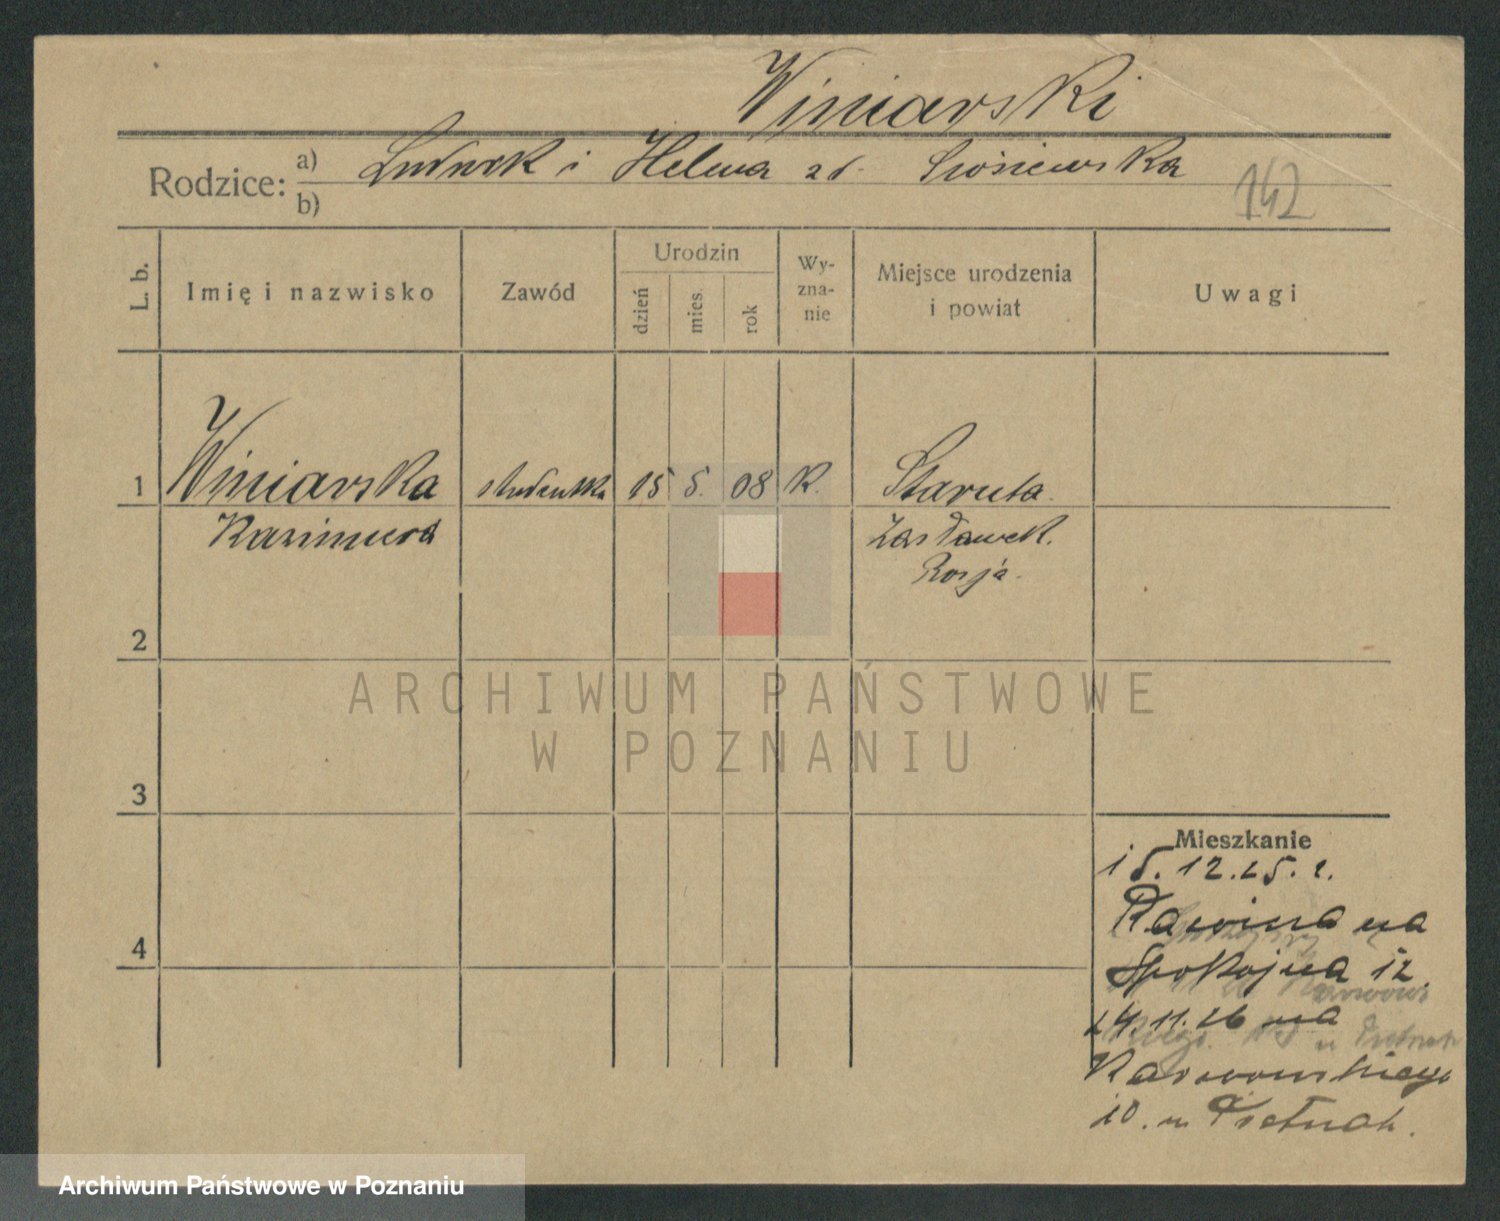 Winiarski
Rodzice: a) Ludwik i Helena zd.
b)
142
L. b.
Imię i nazwisko
Zawód
Urodzin
dzień
mies.
rok
Wy-
zna-
nie
Miejsce urodzenia
i powiat
Uwagi
1 Winiarska studentka 15 5. 08 K. Staruta.
Kazimiera Zasławek.
Rosja.
2
3
4
ARCHIWUM PAŃSTWOWE
W POZNANIU
Mieszkanie
15.12.25. r.
na
Spokojna 12.
24.11.26 na
Karwowskiego
10. m
Archiwum Państwowe w Poznaniu